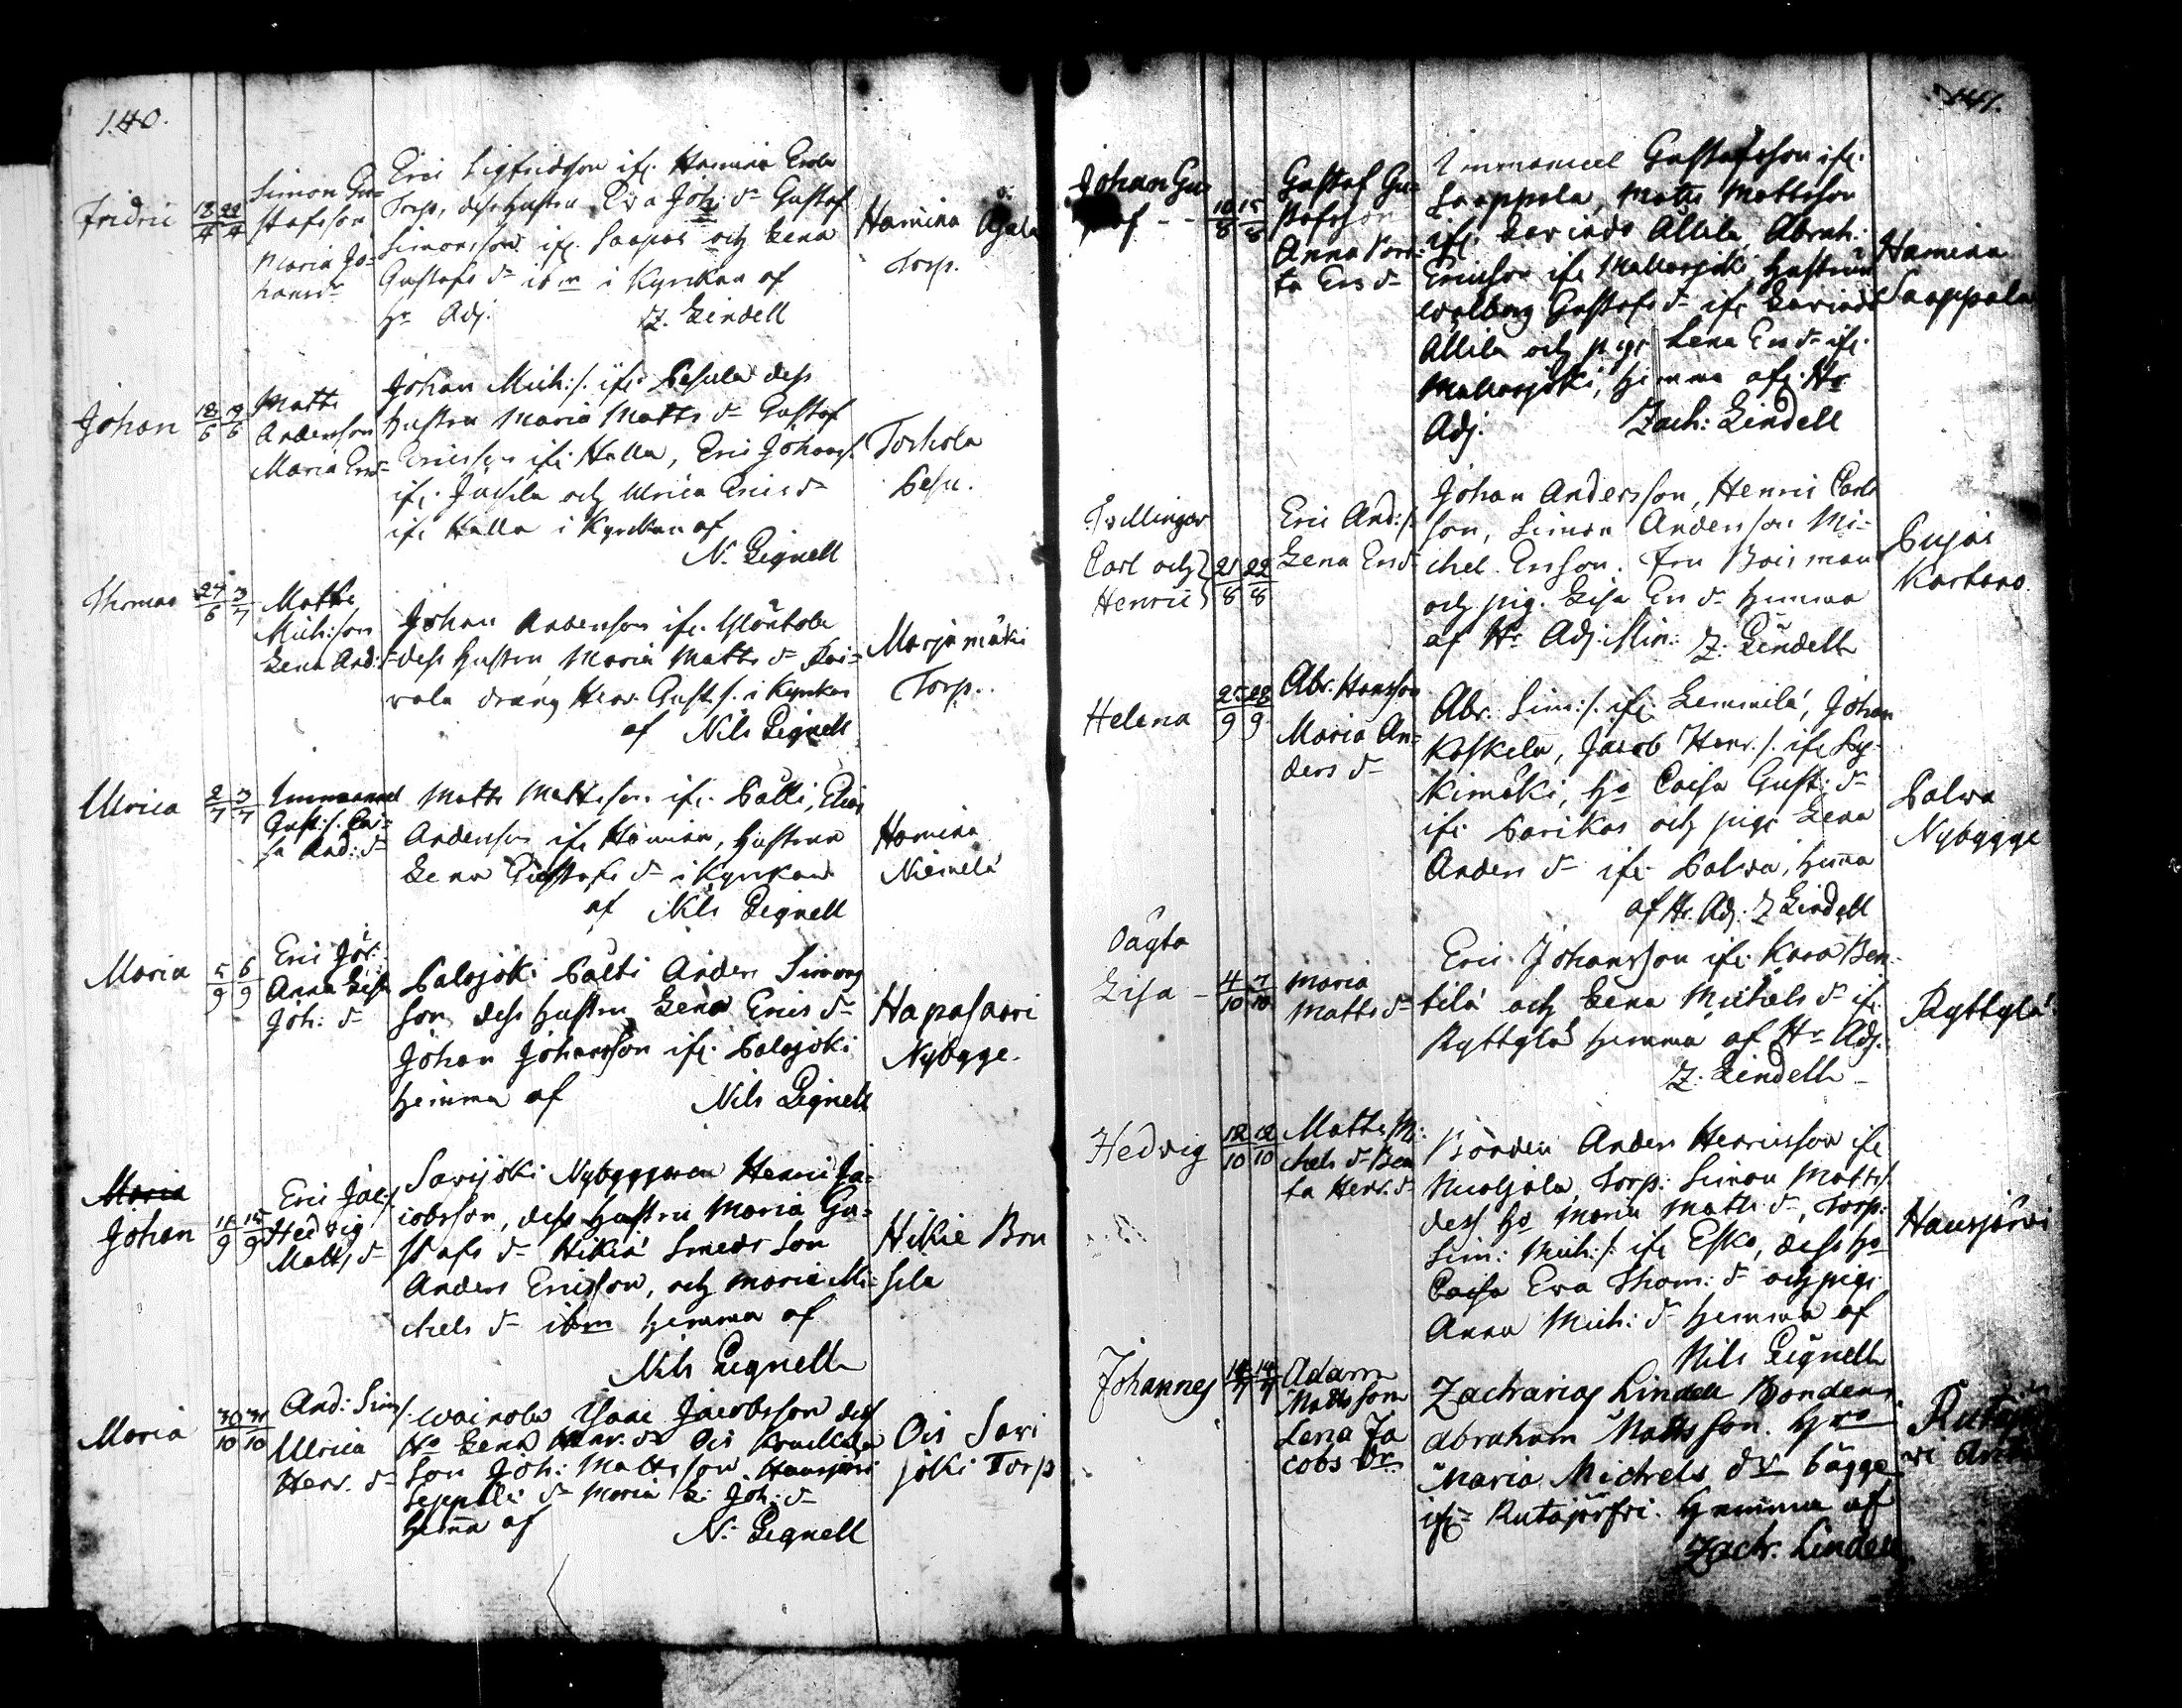 140.
Fridric 18/4 22/4
Simon Gu=
stafsson
Maria Jo=
hansdr
Eric Sigfridsson ifr. Hamina Erola
Torp, dess hustru Eva Joh: dr Gustaf
Simonsson ifr. Saapas och Lena
Gustafs dr ibm i Kyrkan af
Hr Adj. Z. Lindell
Hamina Ojala
Torp.
Johan 18/6 19/6
Matts
Andersson
Maria Ers dr
Johan Mich:s. ifr. Pesula dess
hustru Maria Matts dr Gustaf
Ericsson ifr. Halla, Eric Johanss.
ifr. Jussila och Ulrica Erics dr
ifr Halla i Kyrckan af
N. Lignell
Torhola
Pesu.
Thomas 24/6 3/7
Matts
Mich:son
Lena And: dr
Johan Andersson ifr.
dess hustru Maria Matts dr Kai=
rola dräng Henr. Gust.s. i Kyrkan
af Nils Lignell
Marjamäki
Torp.
Ulrica 2/7 3/7
Immanuel
Gust:s. Cai=
sa And: dr
Matts Mattsson ifr. Pälli, Elias
Andersson ifr Hamina, hustrun
Lena Gustafs dr i Kyrkan
af Nils Lignell
Hamina
Niemelä
Maria 5/9 6/9
Eric Joh:
Anna Lisa
Joh: dr
Palojoki Pälti Anders Simons
son dess hustru Lena Erics dr
Johan Johansson ifr. Palojoki
hemma af Nils Lignell
Hapasaari
Nybygge.
Maria
Johan 11/9 15/9
Eric Jac:s
Hedvig
Matts dr
Sarijoki Nybyggaren Henric Ja=
cobsson, dess hustru Maria Gu=
stafs dr Hikiä Smeds son
Anders Ericsson, och Maria Mi=
chels dr ibm hemma af
Nils Lignell
Hikiä Bru
sila
Maria 30/10 31/10
And: Sim:s.
Ulrica
Henr. dr
Wainola Isaac Jacobsson dess
Ho Lena Henr. dr Ois
son Joh: Mattsson Hausjärvi
Seppälä dr Maria L: Joh: dr
hemma af N. Lignell
Ois Sari
joki Torp
141.
Johan Gu=
staf - - 10/8 15/8
Gustaf Gu=
stafsson
Anna Bri=
ta Ers dr
Immanuel Gustafsson ifr.
Saappola, Matts Mattsson
ifr. Karinds Allila, Abrah:
Ericsson ifr Mallasjoki, hustrun
Walborg Gustafs dr ifr Karinds
Allila och pigs Lena Ers dr ifr.
Mallasjoki, hemma af Hr
Adj. Zach: Lindell
Hamina
Saappala
Tvillingar
Carl och
Henric 21/8 22/8
Eric And:s.
Lena Ers dr
Johan Andersson, Henric Carls
son, Simon Andersson Mi=
chel Ersson. Fru Boisman
och pig. Lisa Ers dr hemma
af Hr Adj. Min: Z. Lindell
Pujoi
Kartano.
Helena 25/9 28/9
Abr. Hansson
Maria An=
ders dr
Abr. Sim:s. ifr. Lemmilä, Johan
Koskela, Jacob Henr.s. ifr Ly=
kimäki, Ho Caisa Gust: dr
ifr. Parikas och pigs Lena
Anders dr ifr. Palva, hemma
af Hr. Adj. Z Lindell
Palva
Nybygge
Oägta
Lisa - 4/10 7/10
Maria
Matts dr
Eric Johansson ifr. Kara Ben=
tilä och Lena Michels dr ifr.
Ryttylä hemma af Hr Adj.
Z. Lindell
Ryttylä
Hedvig 12/10 12/10
Matts Mi:
chels dr Bea
ta Henr. dr
Bonden Anders Henricsson ifr
Nuoljola, Torp: Simon Mattss.
dess Ho Maria Matts dr, Torp:
Sim: Mich:s. ifr Esko, dess Ho
Caisa Eva Thom: dr och pigs
Anna Mich: dr hemma af
Nils Lignell
Hausjärvi
Johannes 14/7 14/7
Adam
Matts son
Lena Ja
cobs Dr.
Zacharias Lindell Bonden
Abraham Matts son. Hro
Maria Michels dr bägge
ifr Rutajärfvi. Hemma af
Zachr. Lindell